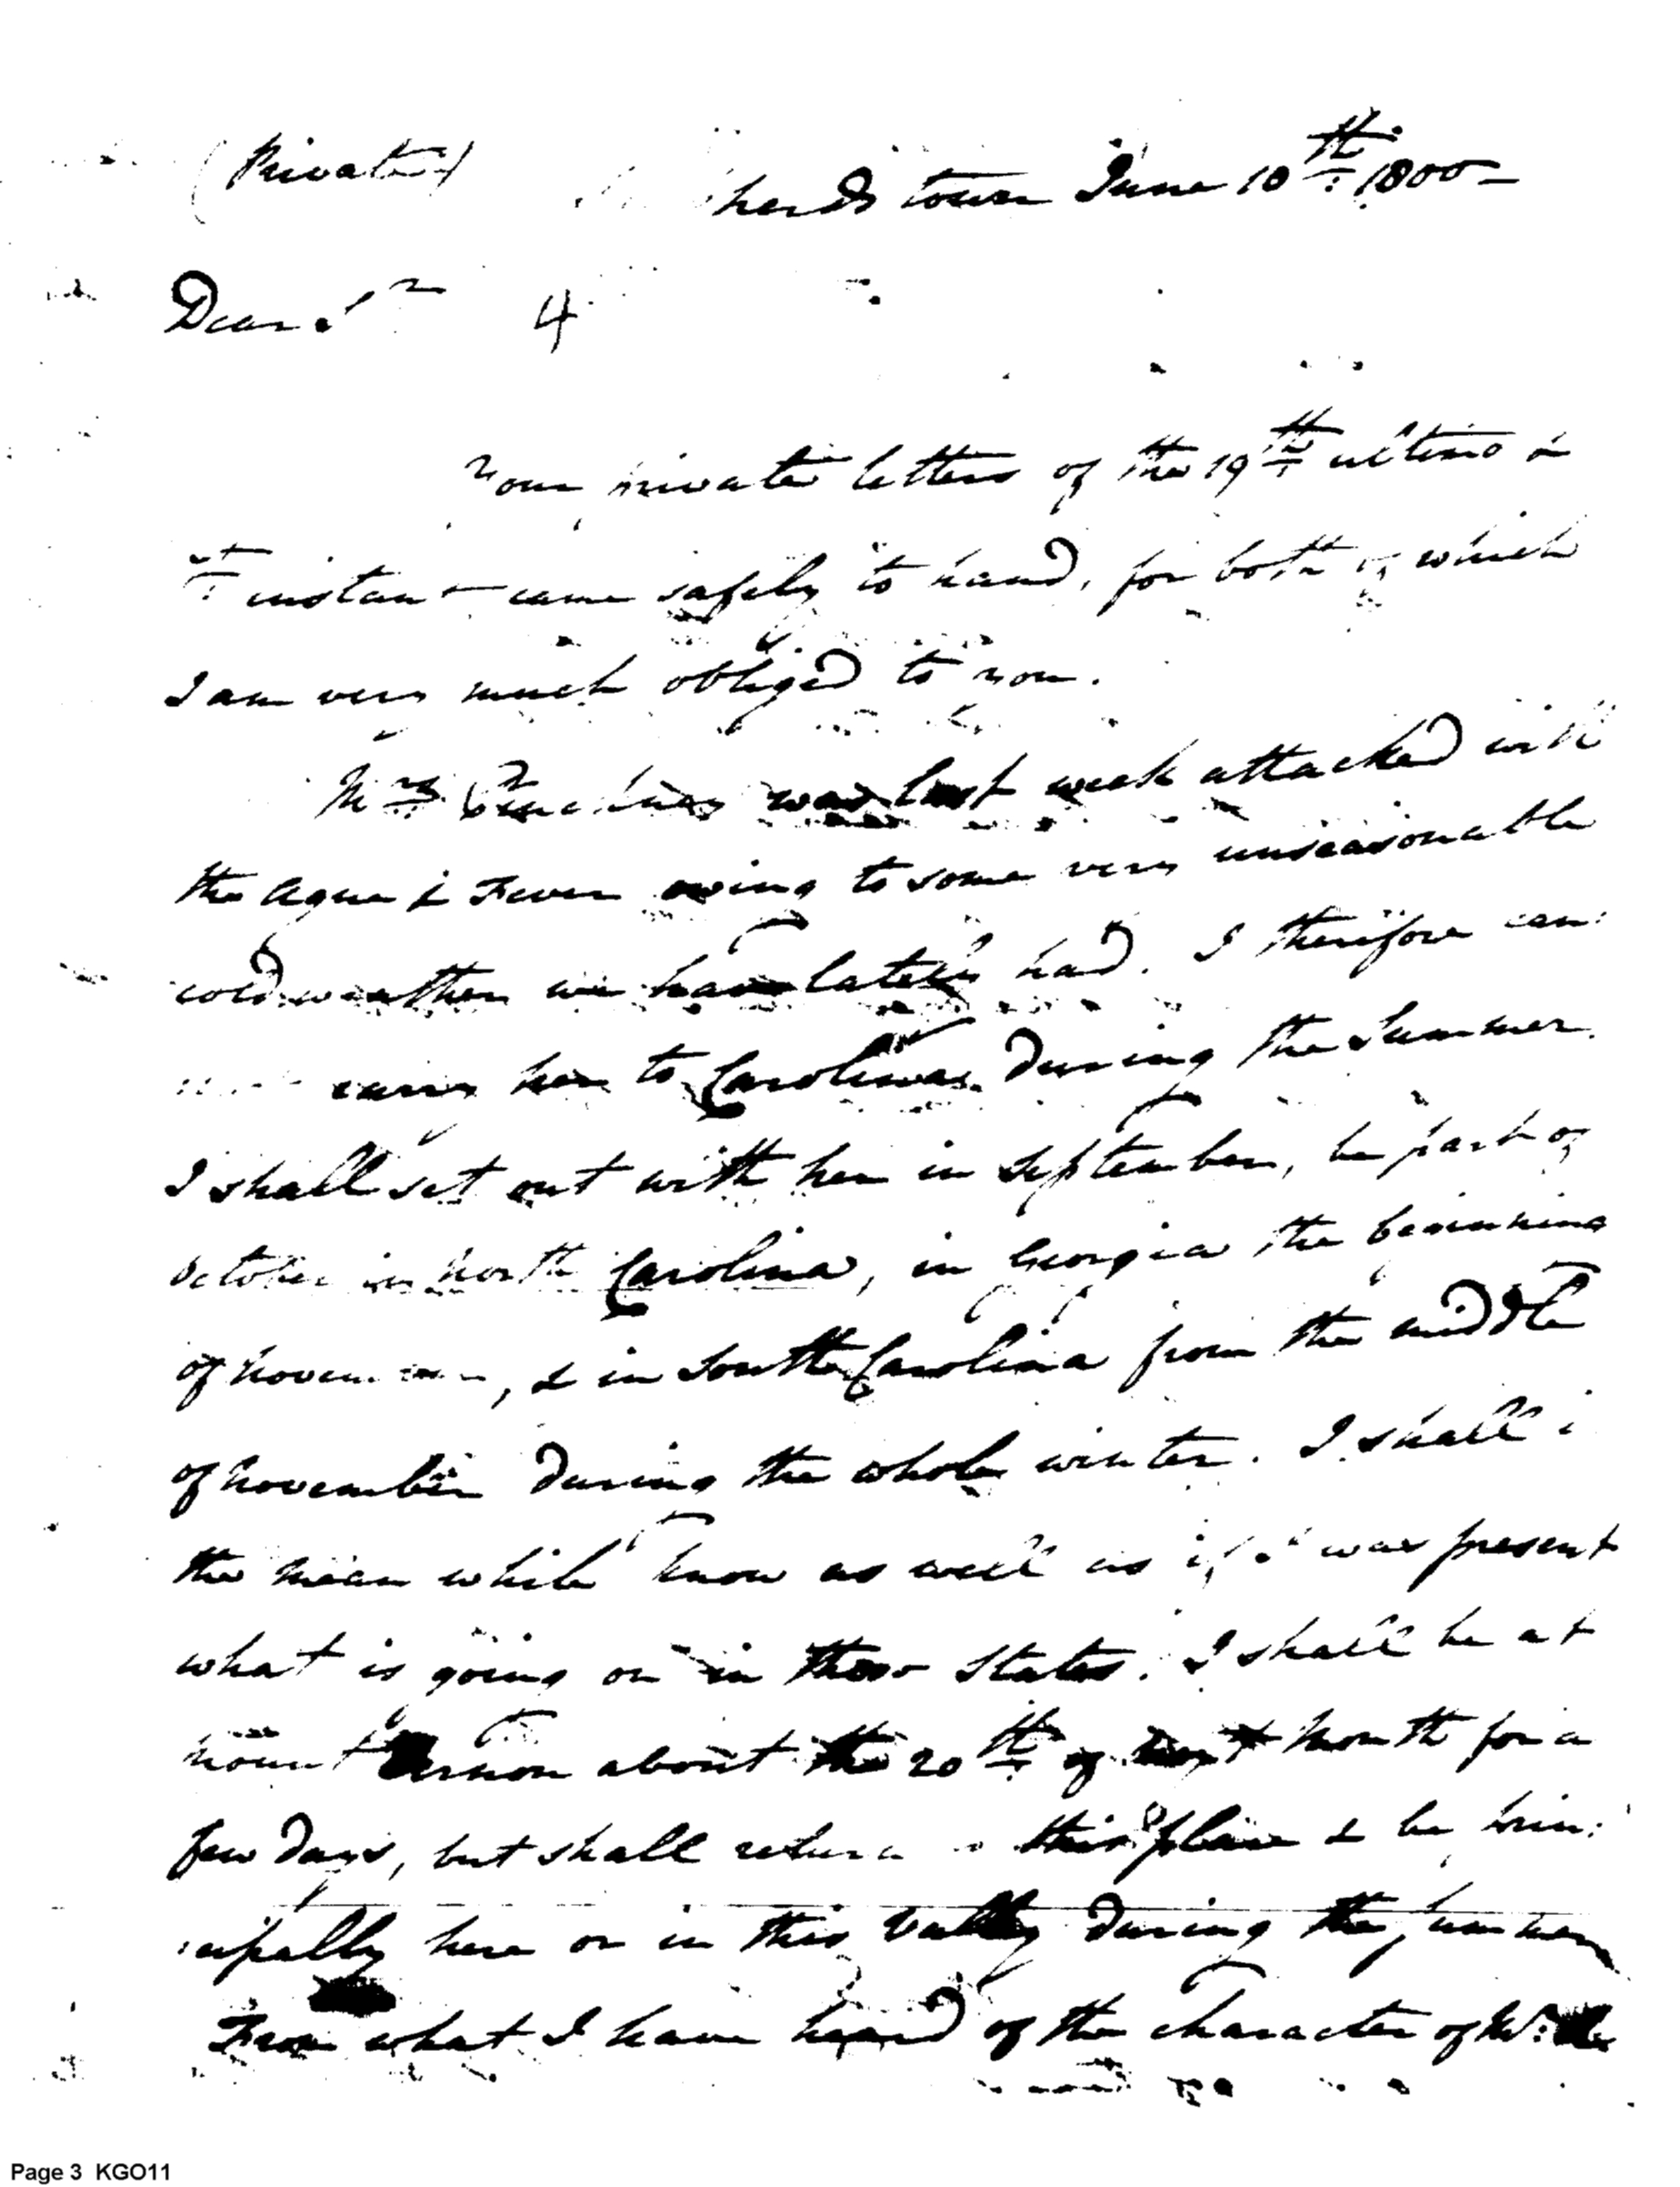 (Private)
herds town June 10th 1800 –
Dear Sr 4
Your private letters of the 19th ultimo &
instant came safely to hand, for both of which
I am very much obliged to you.
Mrs Pinckney was last week attacked with
the Ague & Fever owing to some very unseasonable
cold weather we have lately had. I therefore can:
carry her to Carolina during the Summer.
I shall set out with her in September, be part of
October in North Carolina, in Georgia the beginning
of November, & in South Carolina from the middle
of November during the whole winter. I shall i
the mean while know as well as if I was present
what is going on in those States. I shall be at
Mount Vernon about the 20th of next Month for a
few Days, but shall return this place & be prin:
:cipally here or in this Valley during the summer
From what I have heard of the character of Mr.
Page 3 KGO11